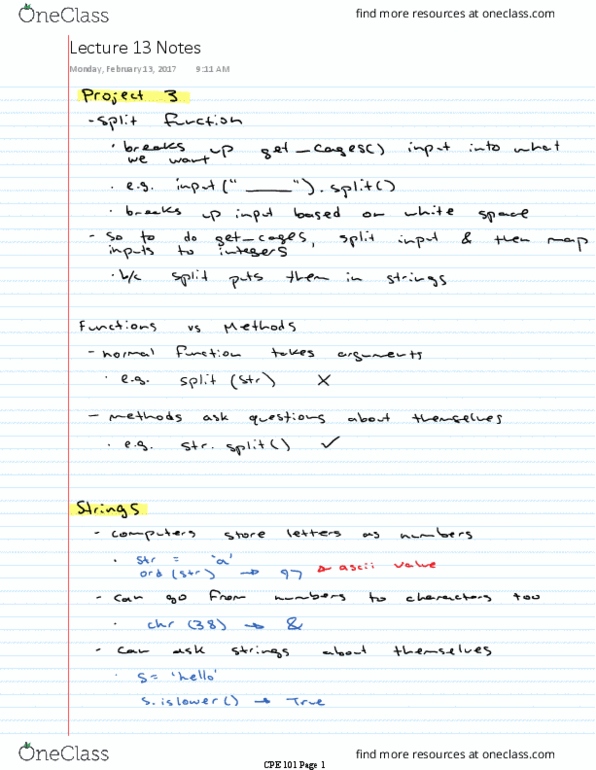 OneClass
find more resources at oneclass.com
Lecture 13 Notes
Monday, February 13, 2017 9:11 AM
Project 3
- split function
· breaks up get_cages() input into what
we want
· e.g. input("_____").split()
· breaks up input based on white space
- so to do get_cages, split input & then map
inputs to integers
· b/c split puts them in strings
Functions vs Methods
- normal function takes arguments
· e.g. split (str) X
- methods ask questions about themselves
· e.g. str. split() ✓
Strings
- computers store letters as numbers
· str = 'a'
ord (str) → 97 ascii value
- can go from numbers to characters too
· chr (38) → &
- can ask strings about themselves
· s = 'hello'
s.islower() → True
OneClass
find more resources at oneclass.com
CPE 101 Page 1